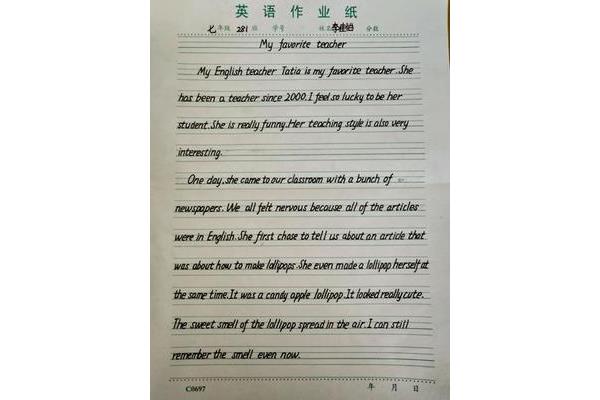 英语作业纸
七年级 281 班 学号 姓名 李佳 分数
My favorite teacher
My English teacher Tatia is my favorite teacher. She
has been a teacher since 2000. I feel so lucky to be her
student. She is really funny. Her teaching style is also very
interesting.
One day, she came to our classroom with a bunch of
newspapers. We all felt nervous because all of the articles
were in English. She first chose to tell us about an article that
was about how to make lollipops. She even made a lollipop herself at
the same time. It was a candy apple lollipop. It looked really cute.
The sweet smell of the lollipop spread in the air. I can still
remember the smell even now.
C0697 年 月 日